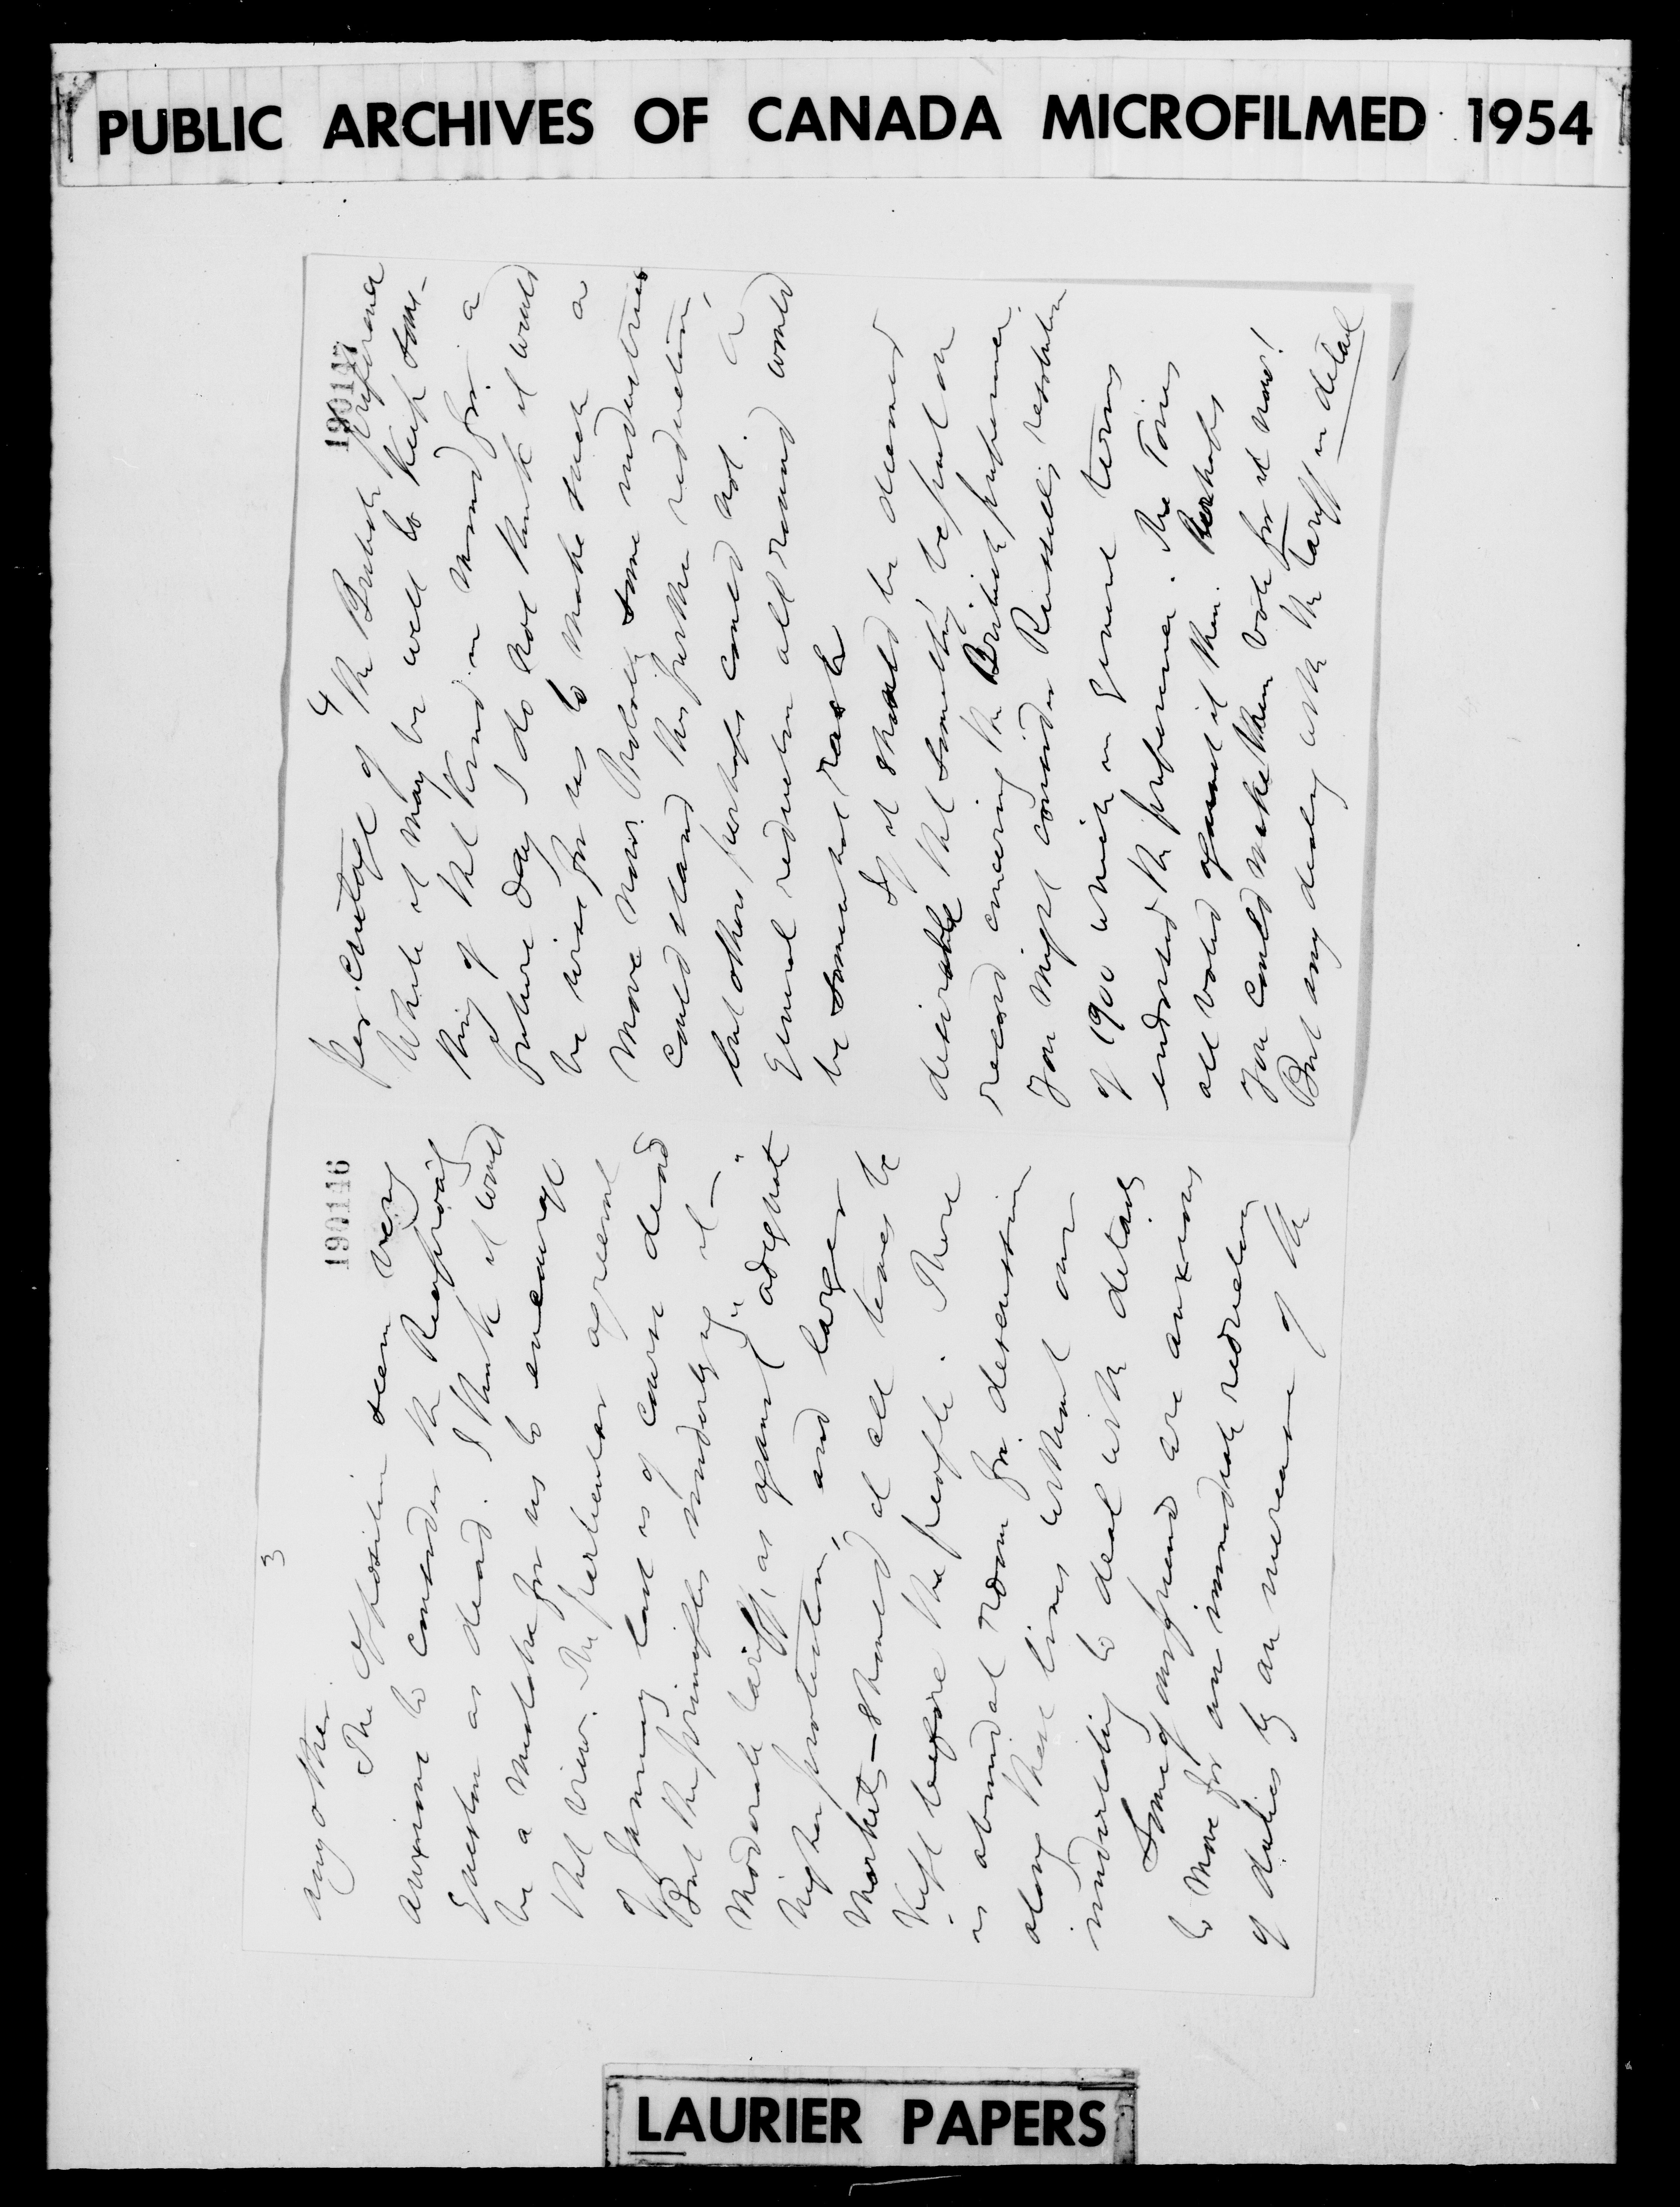 PUBLIC ARCHIVES OF CANADA MICROFILMED 1954
3
190146
any other.
The Opposition seem very
anxious to consider the Reciprocity
Question as dead. I think it would
be a mistake for us to encourage
that view. The particular agreement
of January last is of course dead
But the principles underlying it—
moderate tariff, as against "adequate"
higher protection, and larger
markets—should at all times be
kept before the people. There
is abundant room for discussion
along these lines without our
undertaking to deal with details
Some of our friends are anxious
to move for an immediate reduction
of duties by an increase of the
4
190147
percentage of the British preference
While it may be well to keep some-
thing of that kind in mind for a
future day I do not think it would
be wise for us to make such a
move now. Probably some industries
could stand this further reduction,
but others perhaps could not. A
general reduction all round would
be somewhat rash
If it should be deemed
desirable that something be put on
record concerning the British preference,
you might consider Russell's resolution
of 1900 which in general terms
endorsed the preference. The Tories
all voted against it then. Perhaps
you could make them vote for it now!
But any dealing with the tariff in detail
LAURIER PAPERS